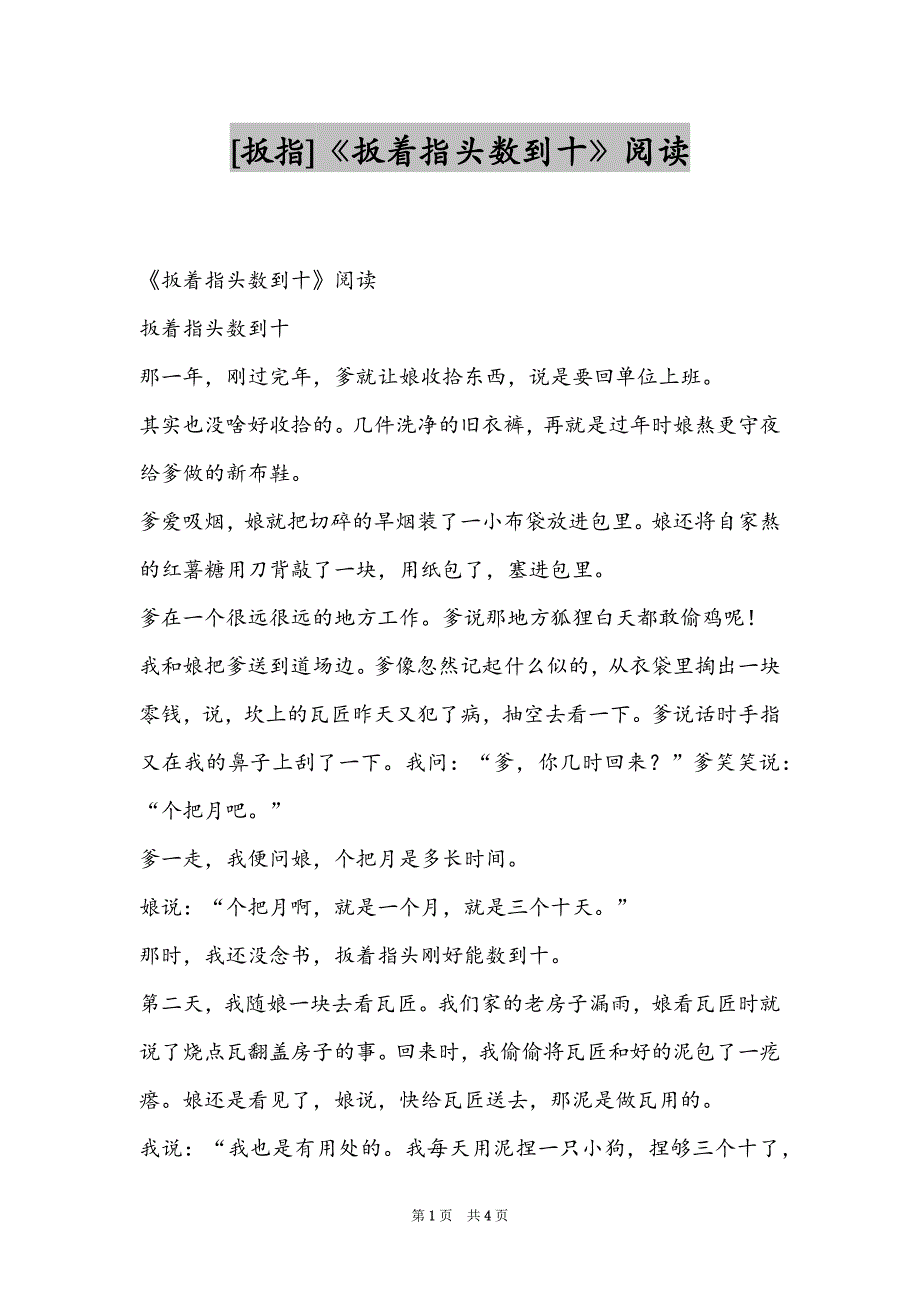 [扳指]《扳着指头数到十》阅读
《扳着指头数到十》阅读
扳着指头数到十
那一年，刚过完年，爹就让娘收拾东西，说是要回单位上班。
其实也没啥好收拾的。几件洗净的旧衣裤，再就是过年时娘熬更守夜
给爹做的新布鞋。
爹爱吸烟，娘就把切碎的旱烟装了一小布袋放进包里。娘还将自家熬
的红薯糖用刀背敲了一块，用纸包了，塞进包里。
爹在一个很远很远的地方工作。爹说那地方狐狸白天都敢偷鸡呢！
我和娘把爹送到道场边。爹像忽然记起什么似的，从衣袋里掏出一块
零钱，说，坎上的瓦匠昨天又犯了病，抽空去看一下。爹说话时手指
又在我的鼻子上刮了一下。我问：“爹，你几时回来？”爹笑笑说：
“个把月吧。”
爹一走，我便问娘，个把月是多长时间。
娘说：“个把月啊，就是一个月，就是三个十天。”
那时，我还没念书，扳着指头刚好能数到十。
第二天，我随娘一块去看瓦匠。我们家的老房子漏雨，娘看瓦匠时就
说了烧点瓦翻盖房子的事。回来时，我偷偷将瓦匠和好的泥包了一疙
瘩。娘还是看见了，娘说，快给瓦匠送去，那泥是做瓦用的。
我说：“我也是有用处的。我每天用泥捏一只小狗，捏够三个十了，
第1页 共4页